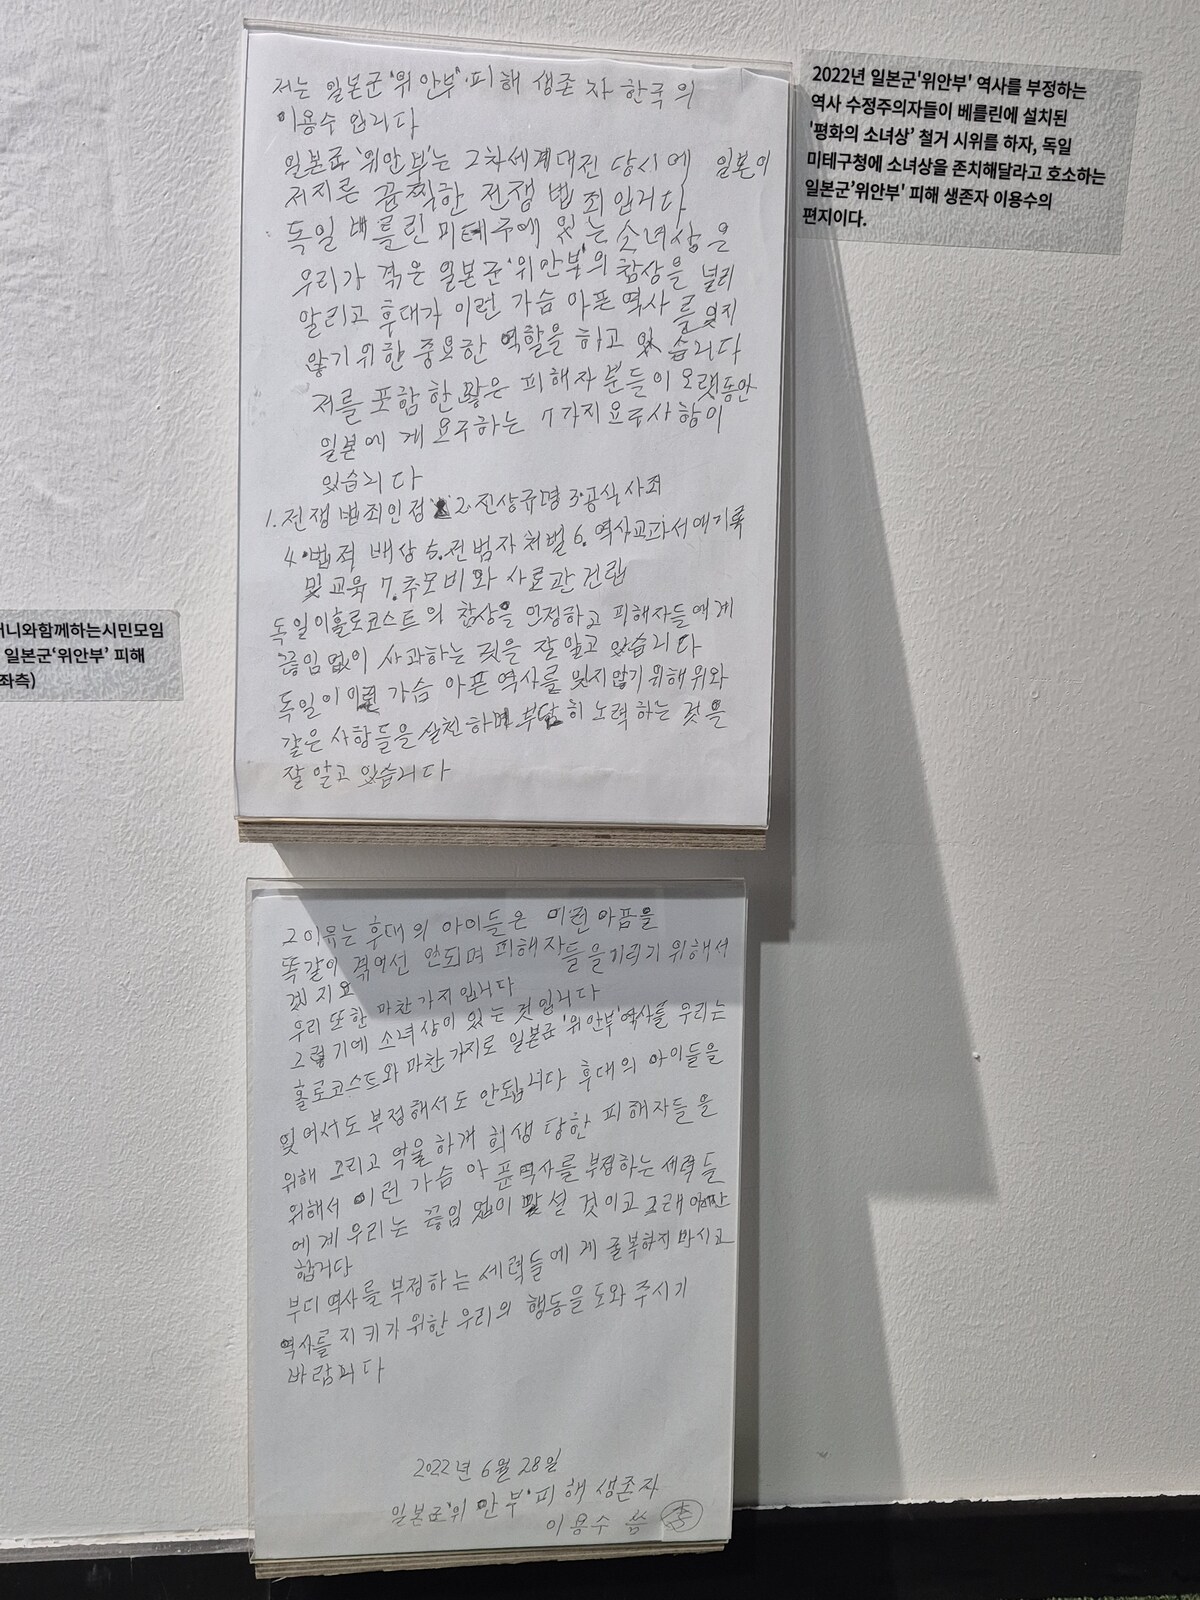 저는 일본군'위안부'피해 생존자 한국의
이용수 입니다
일본군'위안부'는 2차세계대전 당시에 일본이
저지른 끔찍한 전쟁 범죄입니다
독일 베를린 미테구에 있는 소녀상은
우리가 겪은 일본군'위안부'의 참상을 널리
알리고 후대가 이런 가슴 아픈 역사를 잊지
않기 위한 중요한 역할을 하고 있습니다
저를 포함 한 많은 피해자 분들이 오랫동안
일본에게 요구하는 7가지 요구사항이
있습니다
1. 전쟁 범죄인정 2. 진상규명 3. 공식사죄
4. 법적 배상 5. 전범자 처벌 6. 역사교과서에기록
및 교육 7. 추모비와 사료관 건립
독일이홀로코스트의 참상을 인정하고 피해자들에게
끊임없이 사과하는 것을 잘 알고 있습니다
독일이 이런 가슴 아픈 역사를 잊지않기 위해 위와
같은 사항들을 실천하며 부단히 노력하는 것을
잘 알고 있습니다
그이유는 후대의 아이들은 이런아픔을
똑같이 겪어선 안되며 피해자들을기리기 위해서
겠지요
우리 또한 마찬가지입니다
그렇기에 소녀상이 있는 것입니다
홀로코스트와 마찬가지로 일본군'위안부'역사를 우리는
잊어서도 부정해서도 안됩니다 후대의 아이들을
위해 그리고 억울하게 희생 당한 피해자들을
위해서 이런 가슴 아픈역사를 부정하는 세력들
에게 우리는 끊임 없이 맞설 것이고 그래야만
합니다
부디 역사를 부정하는 세력들에게 굴복하지 마시고
역사를 지키기 위한 우리의 행동을 도와 주시기
바랍니다
2022년 6월 28일
일본군'위안부'피해 생존자
이용수 씀 李
2022년 일본군'위안부' 역사를 부정하는
역사 수정주의자들이 베를린에 설치된
'평화의 소녀상' 철거 시위를 하자, 독일
미테구청에 소녀상을 존치해달라고 호소하는
일본군'위안부' 피해 생존자 이용수의
편지이다.
머니와함께하는시민모임
일본군'위안부' 피해
좌측)